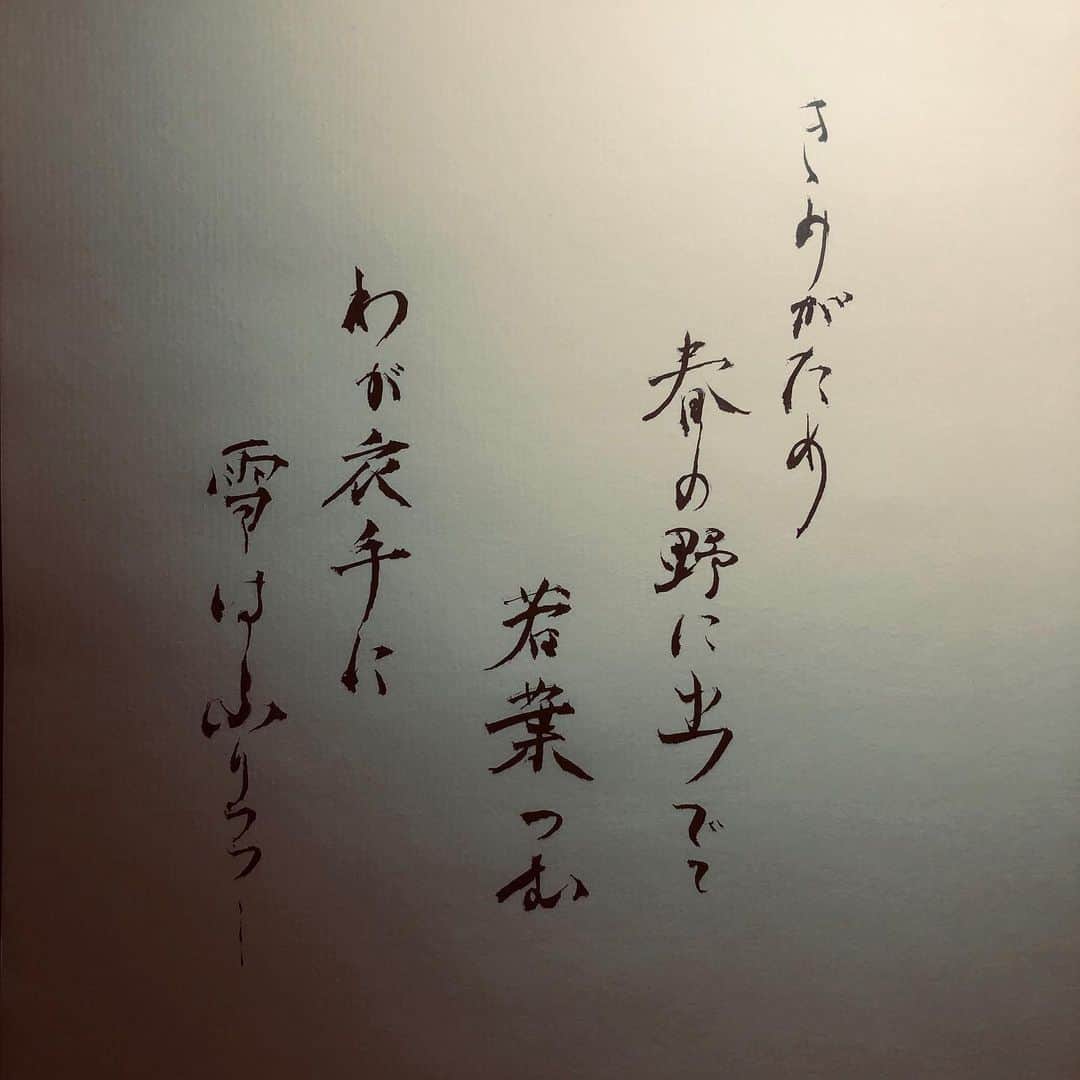 きみがため
春の野に出でて
若葉つむ
わが衣手に
雪はふりつつ